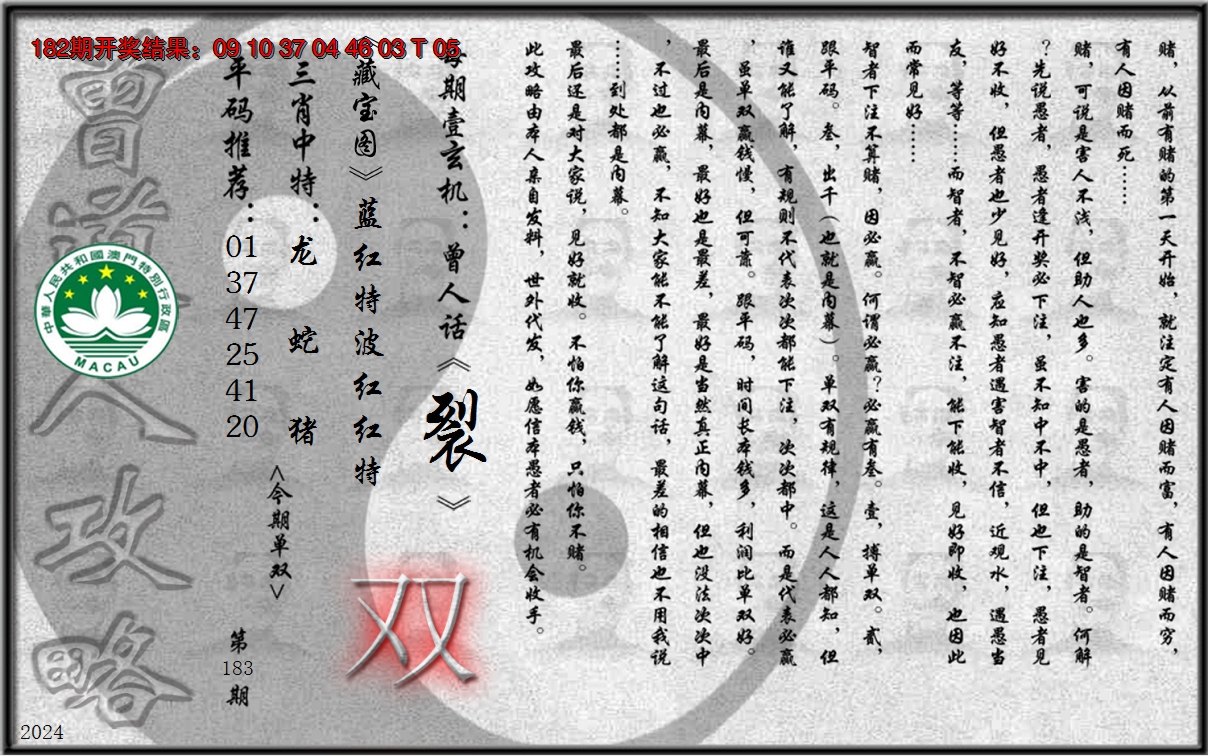 182期开奖结果：09 10 37 04 46 03 T 05
赌，从前有赌的第一天开始，就注定有人因赌而富，有人因赌而穷，
有人因赌而死……
赌，可说是害人不浅，但助人也多。害的是愚者，助的是智者。何解
？先说愚者，愚者逢开奖必下注，虽不知中不中，但也下注，愚者见
好不收，但愚者也少见好，应知愚者遇害智者不信，近观水，遇愚当
友，等等……而智者，不智必赢不注，能下能收，见好即收，也因此
而常见好……
智者下注不算赌，因必赢。何谓必赢？必赢有叁。壹，搏单双。贰，
跟平码。叁，出千（也就是内幕）。单双有规律，这是人人都知，但
谁又能了解，有规则不代表次次都能下注，次次都中。而是代表必赢
，虽单双赢钱慢，但可靠。跟平码，时间长本钱多，利润比单双好。
最后是内幕，最好也是最差，最好是当然真正内幕，但也没法次次中
，不过也必赢，不知大家能不能了解这句话，最差的相信也不用我说
……到处都是内幕。
最后还是对大家说，见好就收。不怕你赢钱，只怕你不赌。
此攻略由本人亲自发料，世外代发，如愿信本愚者必有机会收手。
每期壹玄机：曾人话《裂》
《藏宝图》蓝红特波红红特
双
三肖中特：龙 蛇 猪
<今期单双>
平码推荐：01 37 47 25 41 20
第183期
曾道人攻略
中華人民共和國澳門特別行政區
MACAU
2024